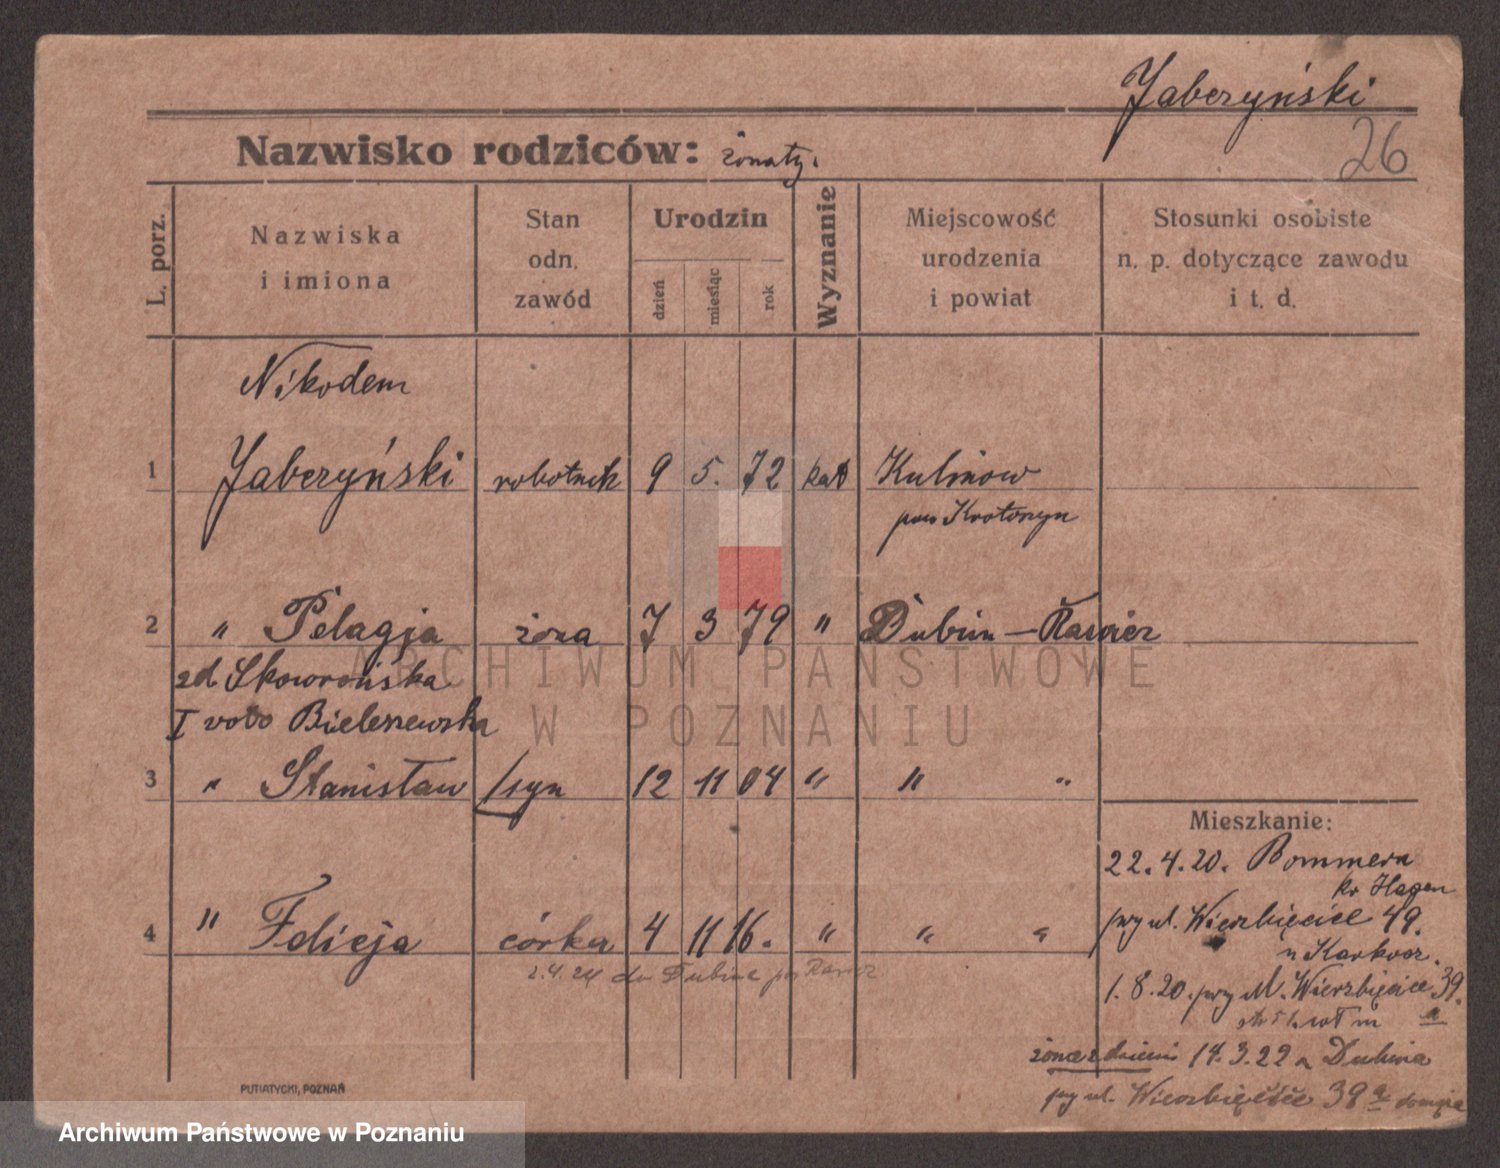 Jaberzyński
26
Nazwisko rodziców: żonaty.
L. porz.
Nazwiska i imiona
Stan odn. zawód
Urodzin
dzień
miesiąc
rok
Wyznanie
Miejscowość urodzenia i powiat
Stosunki osobiste n. p. dotyczące zawodu i t. d.
Nikodem
1 Jaberzyński robotnik 9 5. 72 kat Kulinow
pow Krotoszyn
2 " Pelagja żona 7 3 79 " Dubin – Rawicz
zd Skowrońska
I voto Bieleszewska
3 " Stanisław syn 12 11 04 " " "
Mieszkanie:
22.4.20. Pommern
kr Hagen
4 " Felicja córka 4 11 16. " " "
przy ul. Wierzbięcice 49.
u
2.4.24 do Dubina pow Rawicz
1.8.20. przy ul. Wierzbięcice 39.
a
żona z dziećmi 14.3.22 z Dubina
przy ul. Wierzbięcice 39 a
PUTIATYCKI, POZNAŃ
ARCHIWUM PAŃSTWOWE
W POZNANIU
Archiwum Państwowe w Poznaniu